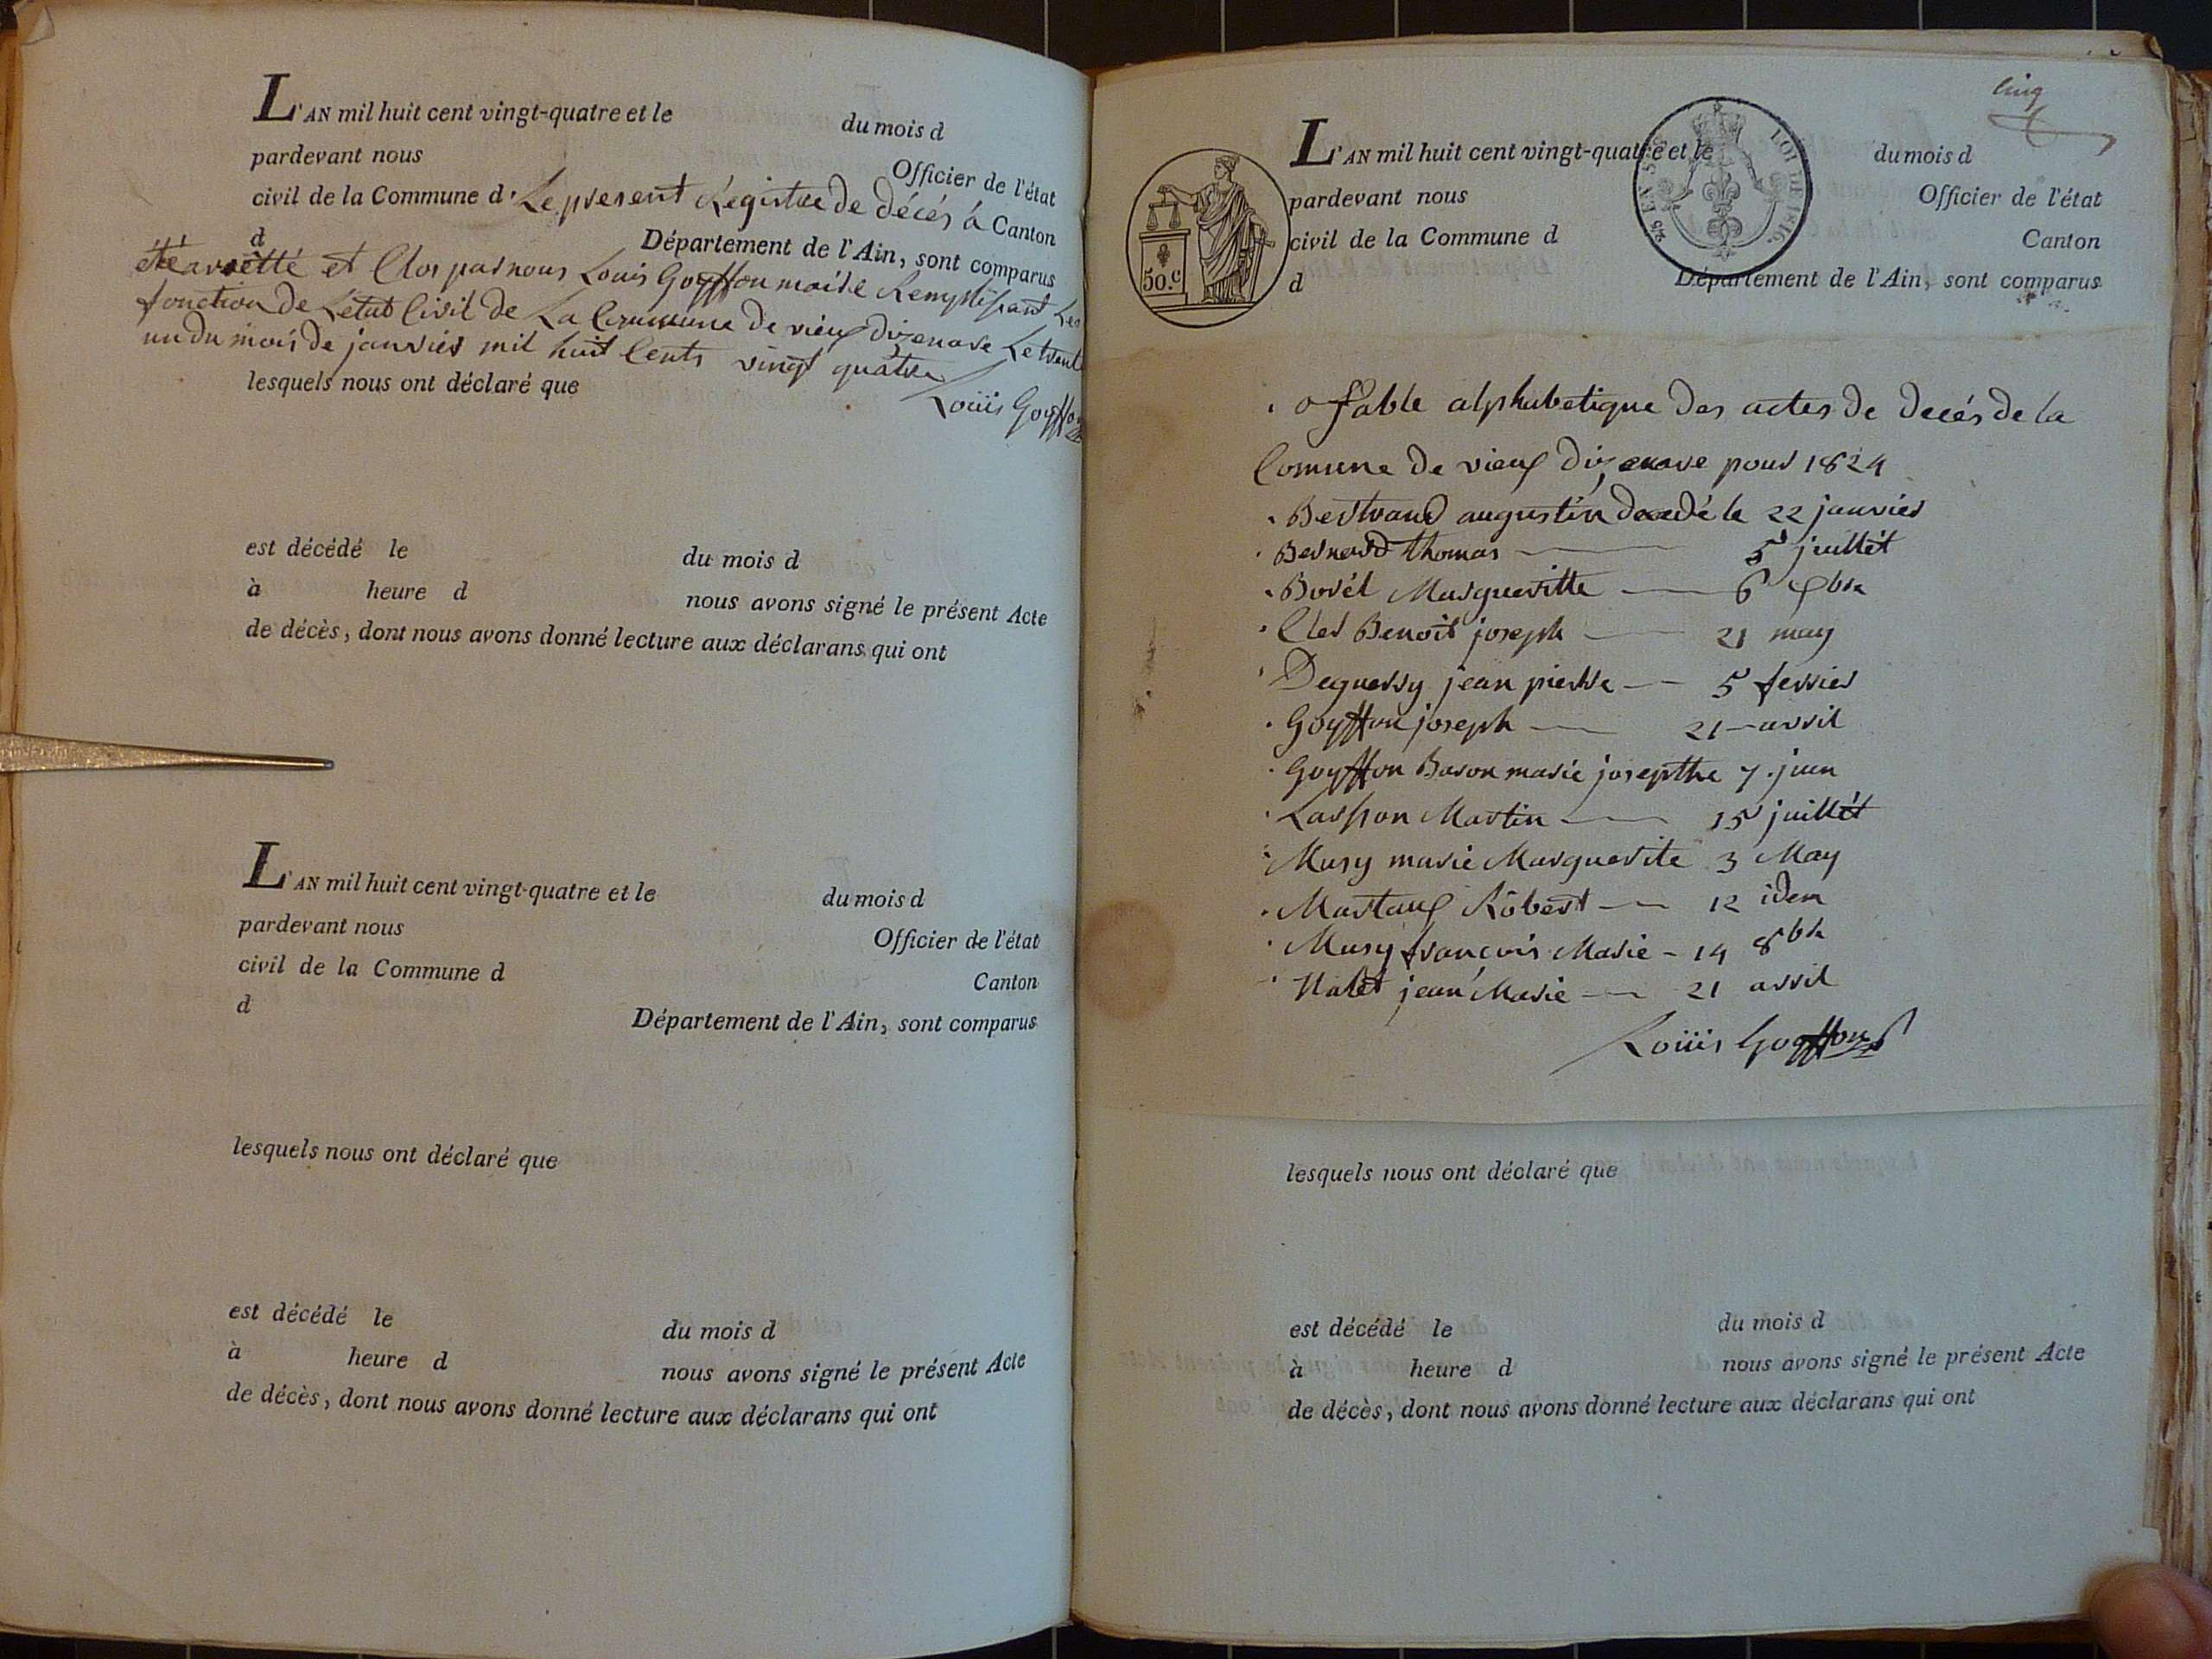 L'AN mil huit cent vingt-quatre et le du mois d
pardevant nous Officier de l'état
civil de la Commune d Le present Registre de décés à Canton
d Département de l'Ain, sont comparus
été arrètté et Clos par nous Louis Goyffon maire Remplissant Les
fonction de L'état Civil de La Commune de vieux dizenave Le trente
un du mois de janvier mil huit Cents vingt quatre
lesquels nous ont déclaré que
Loüis Goyffon
est décédé le du mois d
à heure d nous avons signé le présent Acte
de décès, dont nous avons donné lecture aux déclarans qui ont
L'AN mil huit cent vingt-quatre et le du mois d
pardevant nous Officier de l'état
civil de la Commune d Canton
d Département de l'Ain, sont comparus
lesquels nous ont déclaré que
est décédé le du mois d
à heure d nous avons signé le présent Acte
de décès, dont nous avons donné lecture aux déclarans qui ont
Cinq
L'AN mil huit cent vingt-quatre et le du mois d
pardevant nous Officier de l'état
civil de la Commune d Canton
50.c
d Département de l'Ain, sont comparus
Table alphabetique des actes de decés de la
Comune de vieux dizenave pour 1824
Bertrand augustin decedé le 22 janvier
Bernard thomas 5 juillét
Borét Margueritte 6 9bre
Cler Benoit joseph 21 may
Deguerry jean pierre 5 fevrier
Goyffon joseph 21 avril
Goyffon Baron marie josepthe 7 juin
Lasson Martin 15 juillét
Musy marie Marguerite 3 May
Martaux Robert 12 idem
Musy francois Marie 14 8bre
Nalet jean Marie 21 avril
Loüis Goyffon
lesquels nous ont déclaré que
est décédé le du mois d
à heure d nous avons signé le présent Acte
de décès, dont nous avons donné lecture aux déclarans qui ont